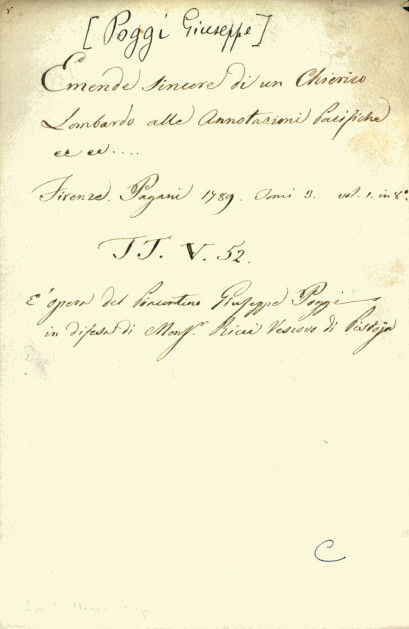 [Poggi Giuseppe]
Emende sincere di un Chierico
Lombardo alle Annotazioni Pacifiche
ec ec....
Firenze. Pagani 1789. Tomi 3. vol. 1. in 8.º
TT. V. 52.
E' opera del Piacentino Giuseppe Poggi
in difesa di Monsr. Ricci Vescovo di Pistoja
C